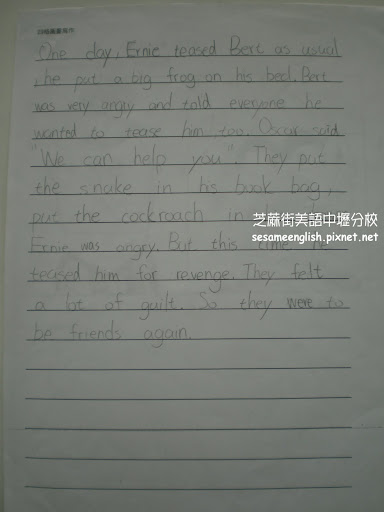 One day, Ernie teased Bert as usual
, he put a big frog on his bed. Bert
was very angry and told everyone he
wanted to tease him too. Oscar said
"We can help you". They put
the snake in his book bag,
put the cockroach in
芝蔴街美語中壢分校
sesameenglish.pixnet.net
Ernie was angry. But this time he
teased him for revenge. They felt
a lot of guilt. So they were to
be friends again.